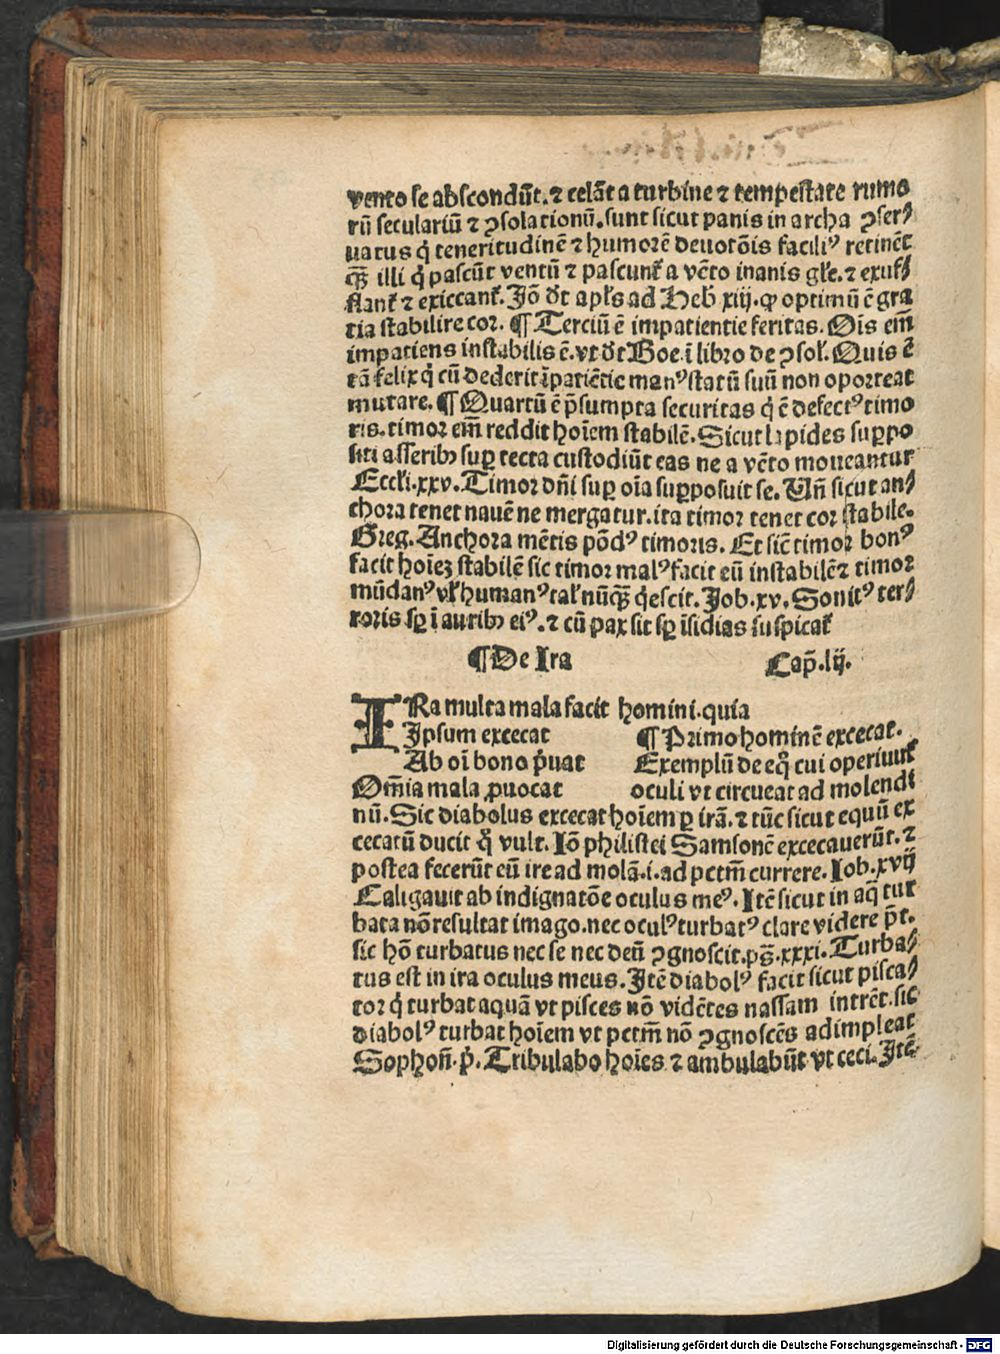 vento se abscondūt.⁊ celāt a turbine ⁊ tempestate rumo
rū seculariū ⁊ ꝯsolationū.sunt sicut panis in archa ꝯser/
uatus q̇ teneritudinē ⁊ humorē deuotōis faciliꝰ retinēt
qꝫ̄ illi q̇ pascūt ventū ⁊ pascunt᷑ a vēto inanis gl̄e.⁊ exuf/
flant᷑ ⁊ exiccant᷑.Jō d̄t apl̄s ad Heb̄ xiij.ꝙ optimū ē gra
tia stabilire cor. ¶ Terciū ē impatientie feritas. Oīs em̄
impatiens instabilis ē.vt d̄t Boe.ī libro de ꝯsol̄. Quis ē
tā felix q̇ cū dederit īpatiētie manꝰ statū suū non oporteat
mutare. ¶ Quartū ē p̄sumpta securitas q̇ ē defectꝰ timo
ris.timor em̄ reddit hoīem stabilē. Sicut lapides suꝑpo
siti asseribꝰ suꝑ tecta custodiūt eas ne a vēto moueantur
Eccl̄i.xxv. Timor dn̄i suꝑ oīa suꝑposuit se. Vn̄ sicut an/
chora tenet nauē ne mergatur.ita timor tenet cor stabile.
Greg. Anchora mētis pōdꝰ timoris. Et sic̄ timor bonꝰ
facit hoīeꝫ stabilē sic timor malꝰ facit eū instabilē ⁊ timor
mūdanꝰ vl̄ humanꝰ tal̄ nūqꝫ̄ q̇escit. Job.xv. Sonitꝰ ter/
roris sꝑ ī auribꝰ eiꝰ.⁊ cū pax sit sꝑ īsidias suspicat᷑
¶ De Ira Cap̄.lij.
IRa multa mala facit homini.quia
Ipsum excecat ¶ Primo hominē excecat.
Ab oī bono ṗuat Exemplū de eq̊ cui operiunt᷑
Om̄ia mala ꝓuocat oculi vt circueat ad molendi
nū. Sic diabolus excecat hoīem ꝑ irā.⁊ tūc sicut equū ex
cecatū ducit q̊ vult. Iō philistei Samsonē excecauerūt.⁊
postea fecerūt eū ire ad molā.i.ad pctm̄ currere. Iob.xvij
Caligauit ab indignatōe oculus meꝰ. Itē sicut in aq̄ tur
bata nō resultat imago.nec oculꝰ turbatꝰ clare videre p̄t.
sic hō turbatus nec se nec deū ꝯgnoscit.ps̄.xxxi. Turba/
tus est in ira oculus meus. Itē diabolꝰ facit sicut pisca/
tor q̇ turbat aquā vt pisces nō vidētes nassam intrēt.sic
diabolꝰ turbat hoīem vt pctm̄ nō ꝯgnoscēs adimpleat
Sophon̄.ṗ. Tribulabo hoīes ⁊ ambulabūt vt ceci. Itē
Digitalisierung gefördert durch die Deutsche Forschungsgemeinschaft - DFG